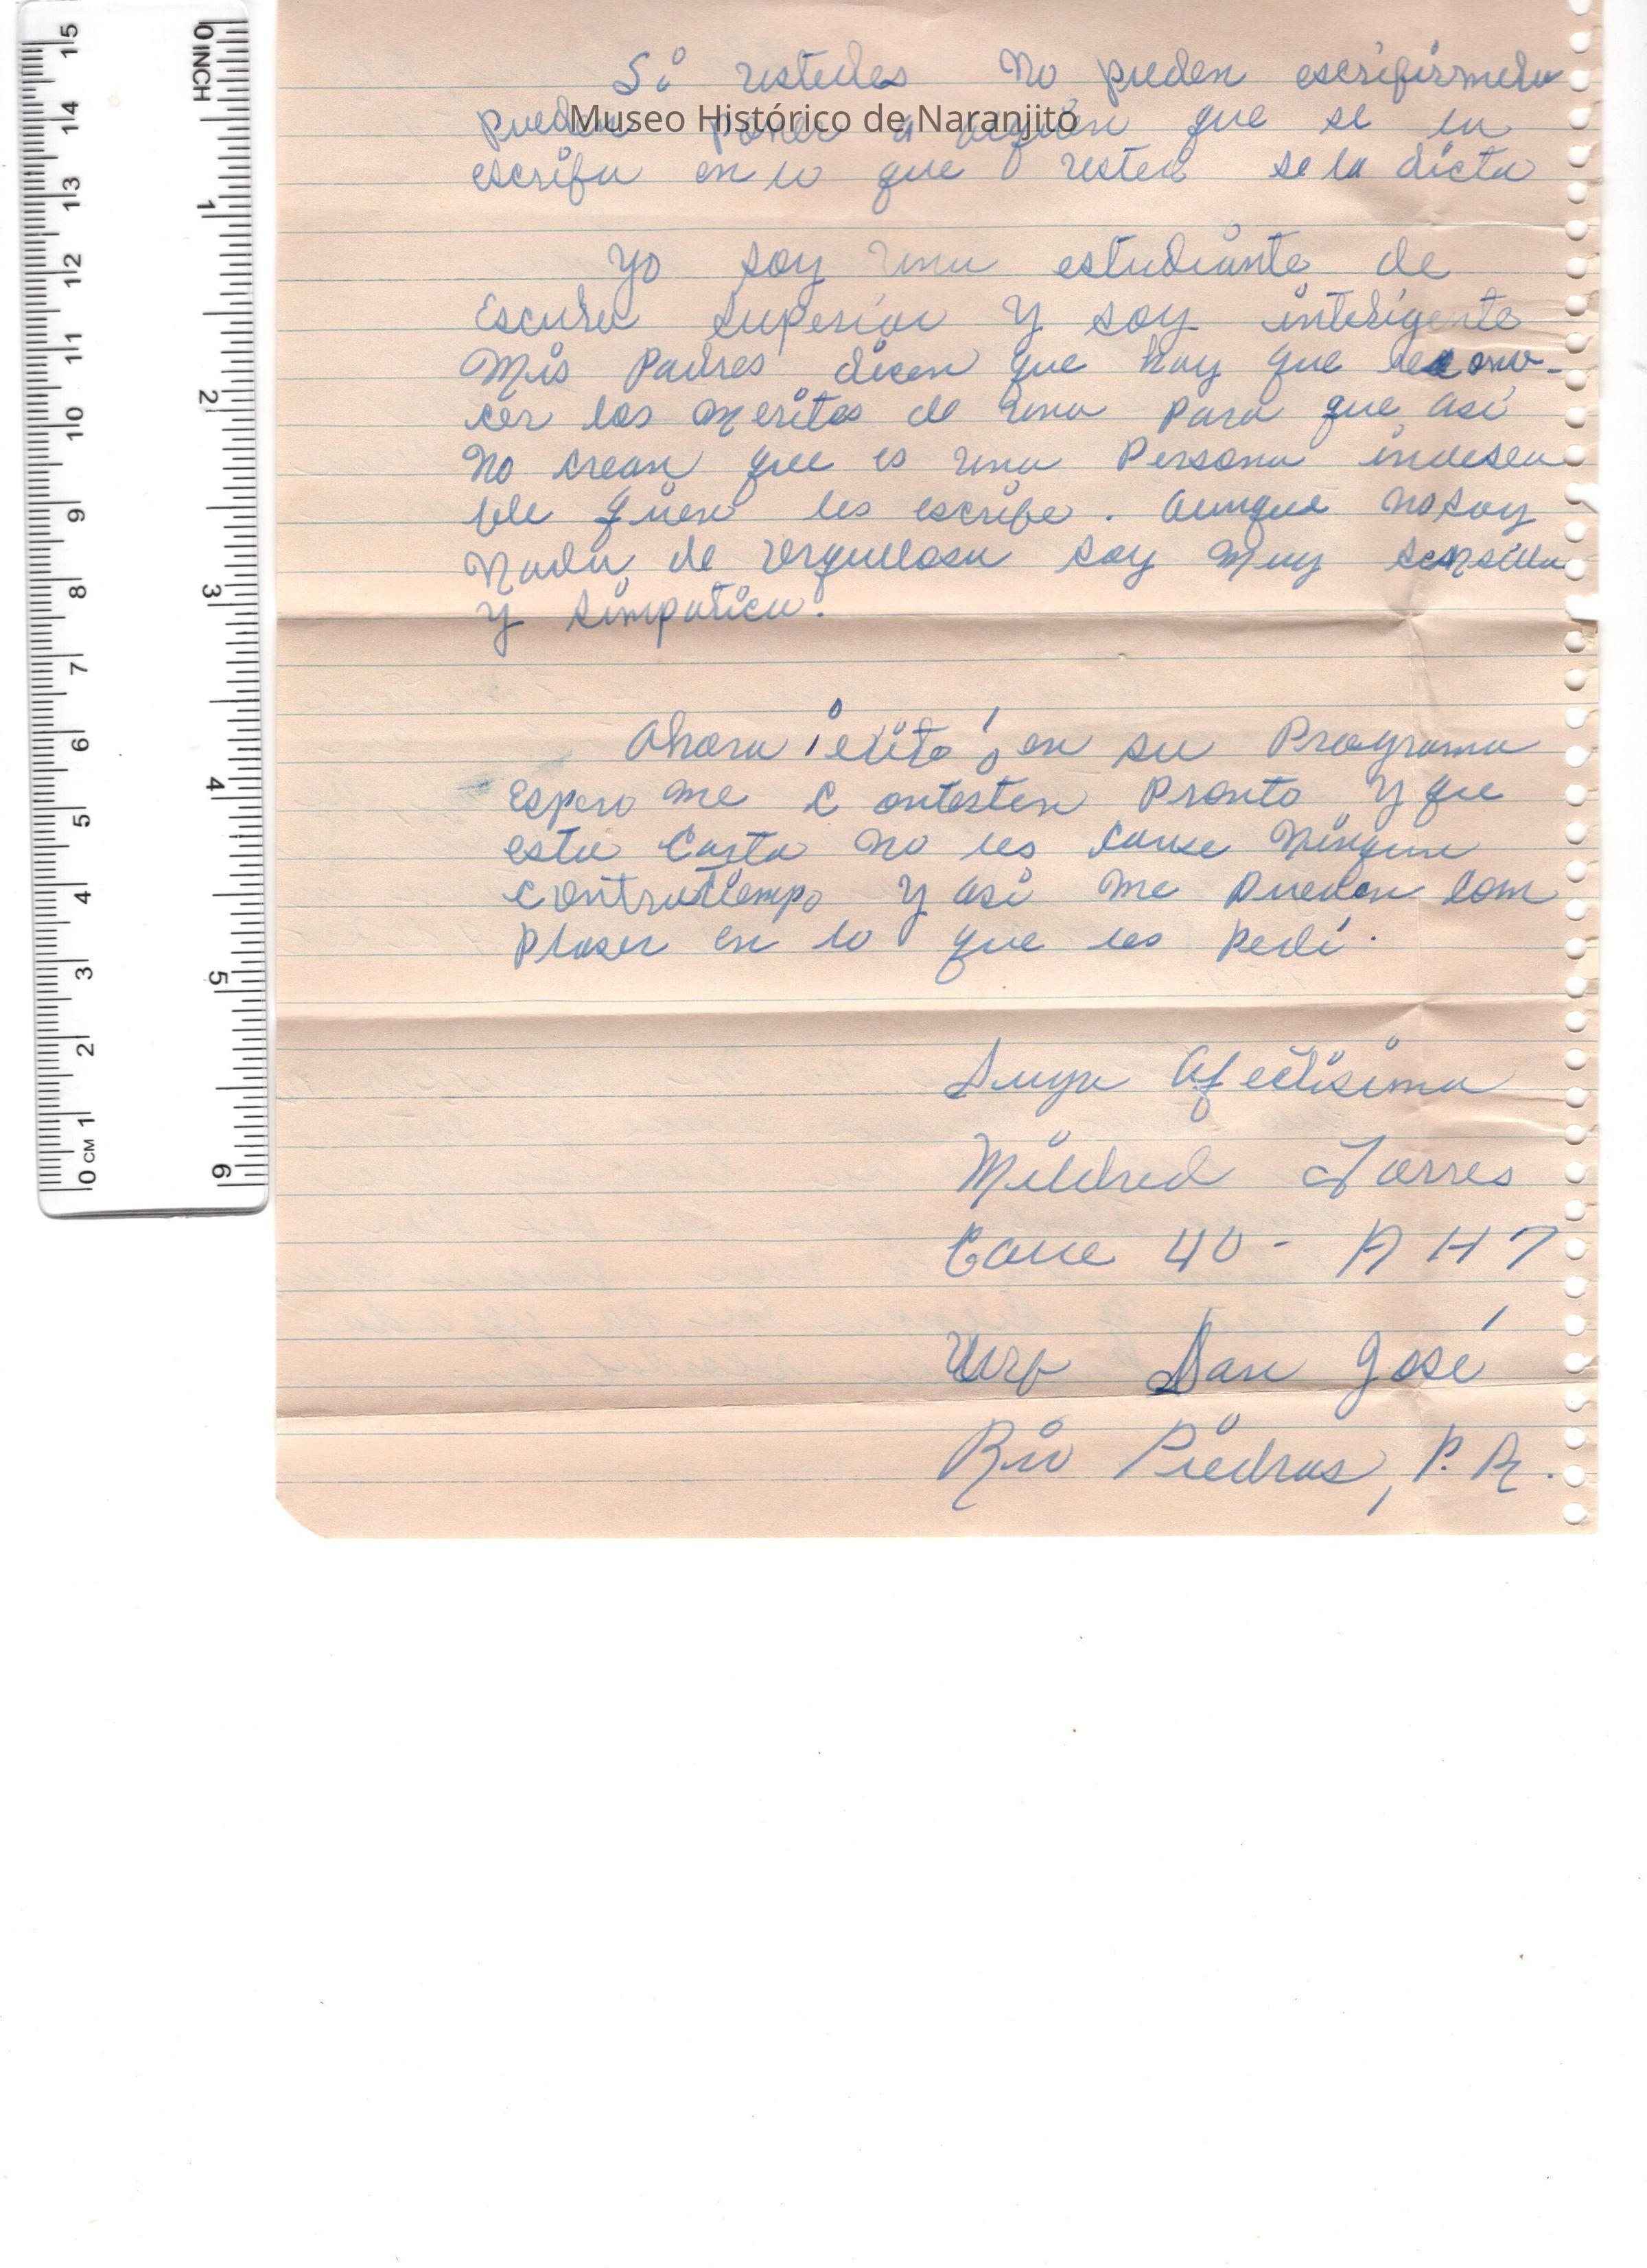 Si ustedes no pueden escribirmela
pueden poner a alguien que se la
escriba en lo que usted se la dicta
Yo soy una estudiante de
Escuela Superior y soy inteligente
Mis Padres dicen que hay que recono-
cer los meritos de una para que asi
no crean que es una Persona indesea
ble quien les escribe. Aunque no soy
Nada de orgullosa soy muy sensilla
y simpatica.
Ahora ¡exito! en su Programa
Espero me contesten Pronto y que
esta Carta no les cause Ningun
contratiempo y asi me pueden com
plaser en lo que les pedí.
Suya Afectisima
Mildred Torres
Calle 40 - AH7
Urb San José
Rio Piedras, P.R.
Museo Histórico de Naranjito
0 INCH 1 2 3 4 5 6
15 14 13 12 11 10 9 8 7 6 5 4 3 2 1 0 CM